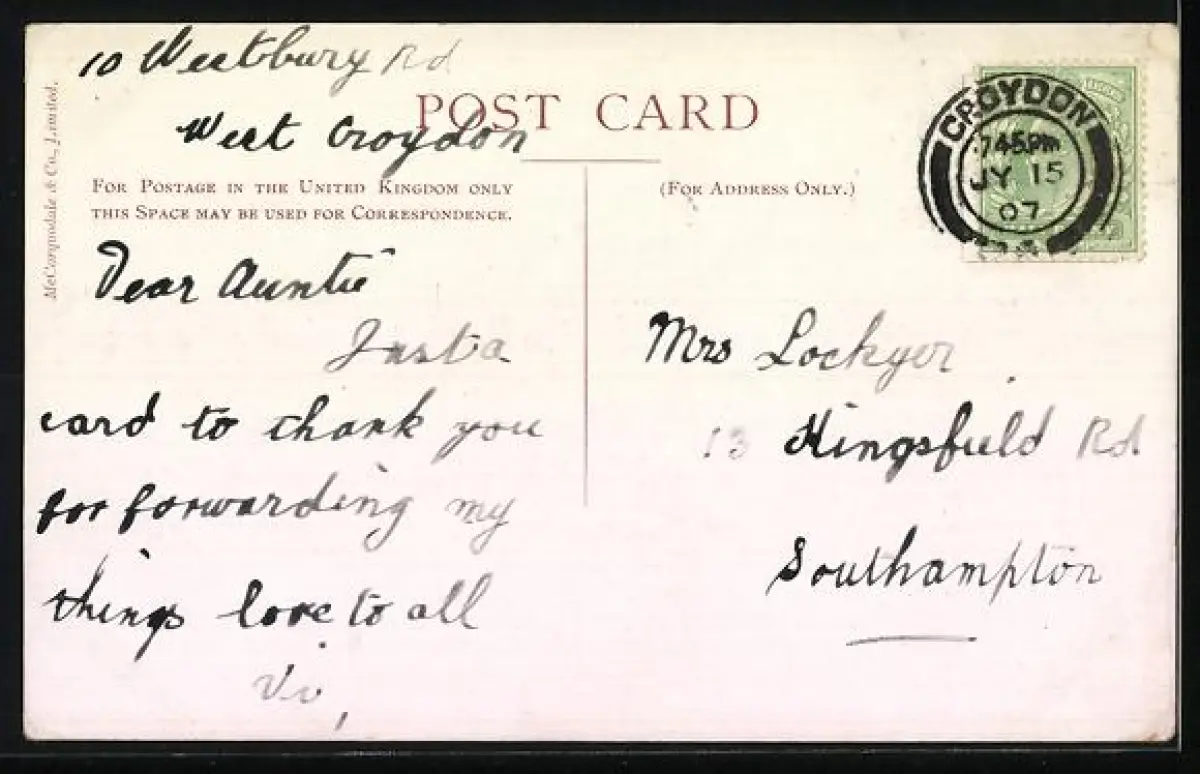 10 Westbury Rd
West Croydon
POST CARD
McCorquodale & Co., Limited.
FOR POSTAGE IN THE UNITED KINGDOM ONLY
THIS SPACE MAY BE USED FOR CORRESPONDENCE.
(FOR ADDRESS ONLY.)
CROYDON
7 45 PM
JY 15
07
Dear Auntie
Just a
card to thank you
for forwarding my
things love to all
Vi,
Mrs Lockyer
13 Kingsfield Rd
Southampton